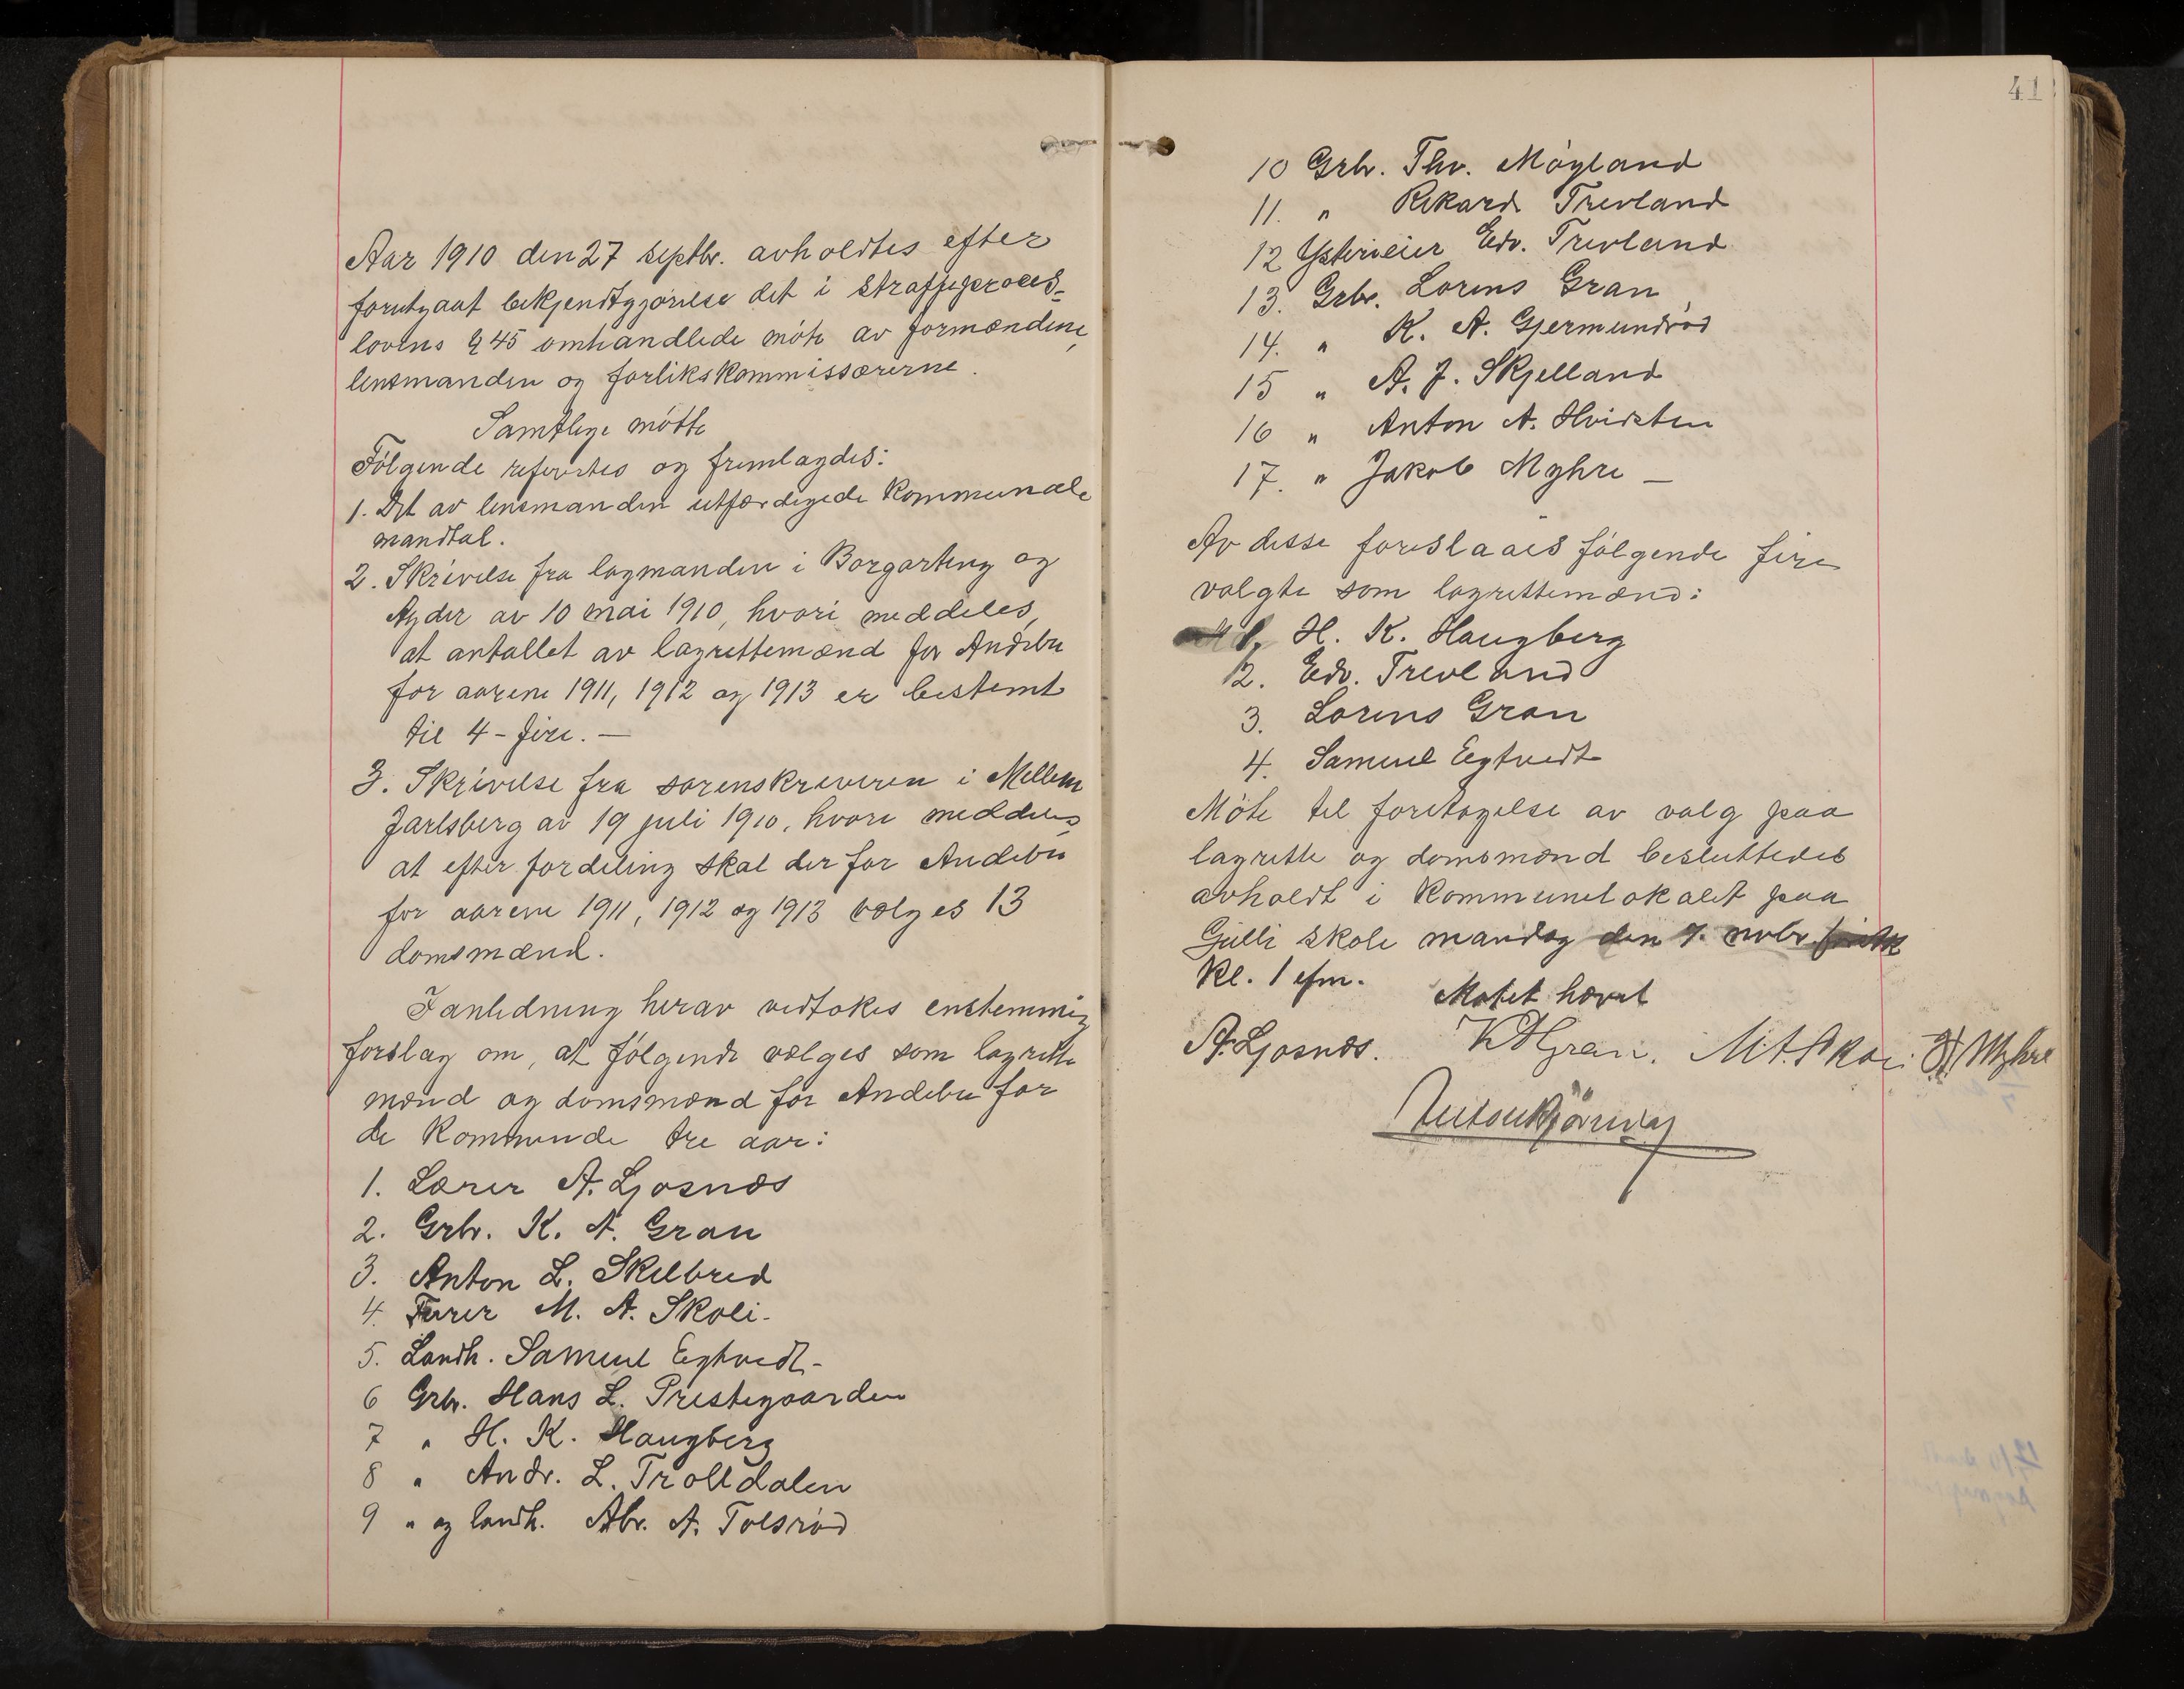 Aar 1910 den 27 septbr. avholdtes efter
forutgaat bekjendtgjørelse det i straffeproces-
lovens § 45 omhandlede møte av formændene,
lensmanden og forlikskommissærerne.
Samtlige møtte
Følgende refertes og fremlagdes:
1. Det av lensmanden utfærdigede kommunale
mandtal.
2. Skrivelse fra lagmanden i Borgarting og
Agder av 10 mai 1910, hvori meddeles,
at antallet av lagrettemænd for Andebu
for aarene 1911, 1912 og 1913 er bestemt
til 4 - fire. —
3. Skrivelse fra sorenskriveren i Mellem
Jarlsberg av 19 juli 1910, hvori meddeles,
at efter fordeling skal der for Andebu
for aarene 1911, 1912 og 1913 vælges 13
domsmænd.
I anledning herav vedtokes enstemmig
forslag om, at følgende vælges som lagrette
mænd og domsmænd for Andebu for
de kommende tre aar:
1. Lærer A. Ljosnæs
2. Grbr. K. A. Gran
3. Anton L. Skilbred
4. Furer M. A. Skoli -
5. Landh. Samuel Eghvedt -
6 Grbr. Hans L. Prestegaarden
7 " H. K. Haugberg
8 " Andr. L. Trolldalen
9 " og landh. Abr. A. Tolsrød
41
10 Grbr. Thv. Møyland
11. " Rikard Trevland
12 Ysterieier Edv. Trevland
13. Grbr. Lorens Gran
14. " K. A. Gjermundrød
15 " A. J. Skjelland
16 " Anton A. Hvidsten
17. " Jakob Myhre —
Av disse foreslaaes følgende fire
valgte som lagrettemænd:
1. H. K. Haugberg
2. Edv. Trevland
3. Lorens Gran
4. Samuel Eghvedt
Møte til foretagelse av valg paa
lagrette og domsmænd besluttedes
avholdt i kommunelokalet paa
Gulli skole mandag den 7. novbr.
kl. 1 efm.
Møtet hævet
A. Ljosnæs. K A Gran. M. A. Skoli. Myhre